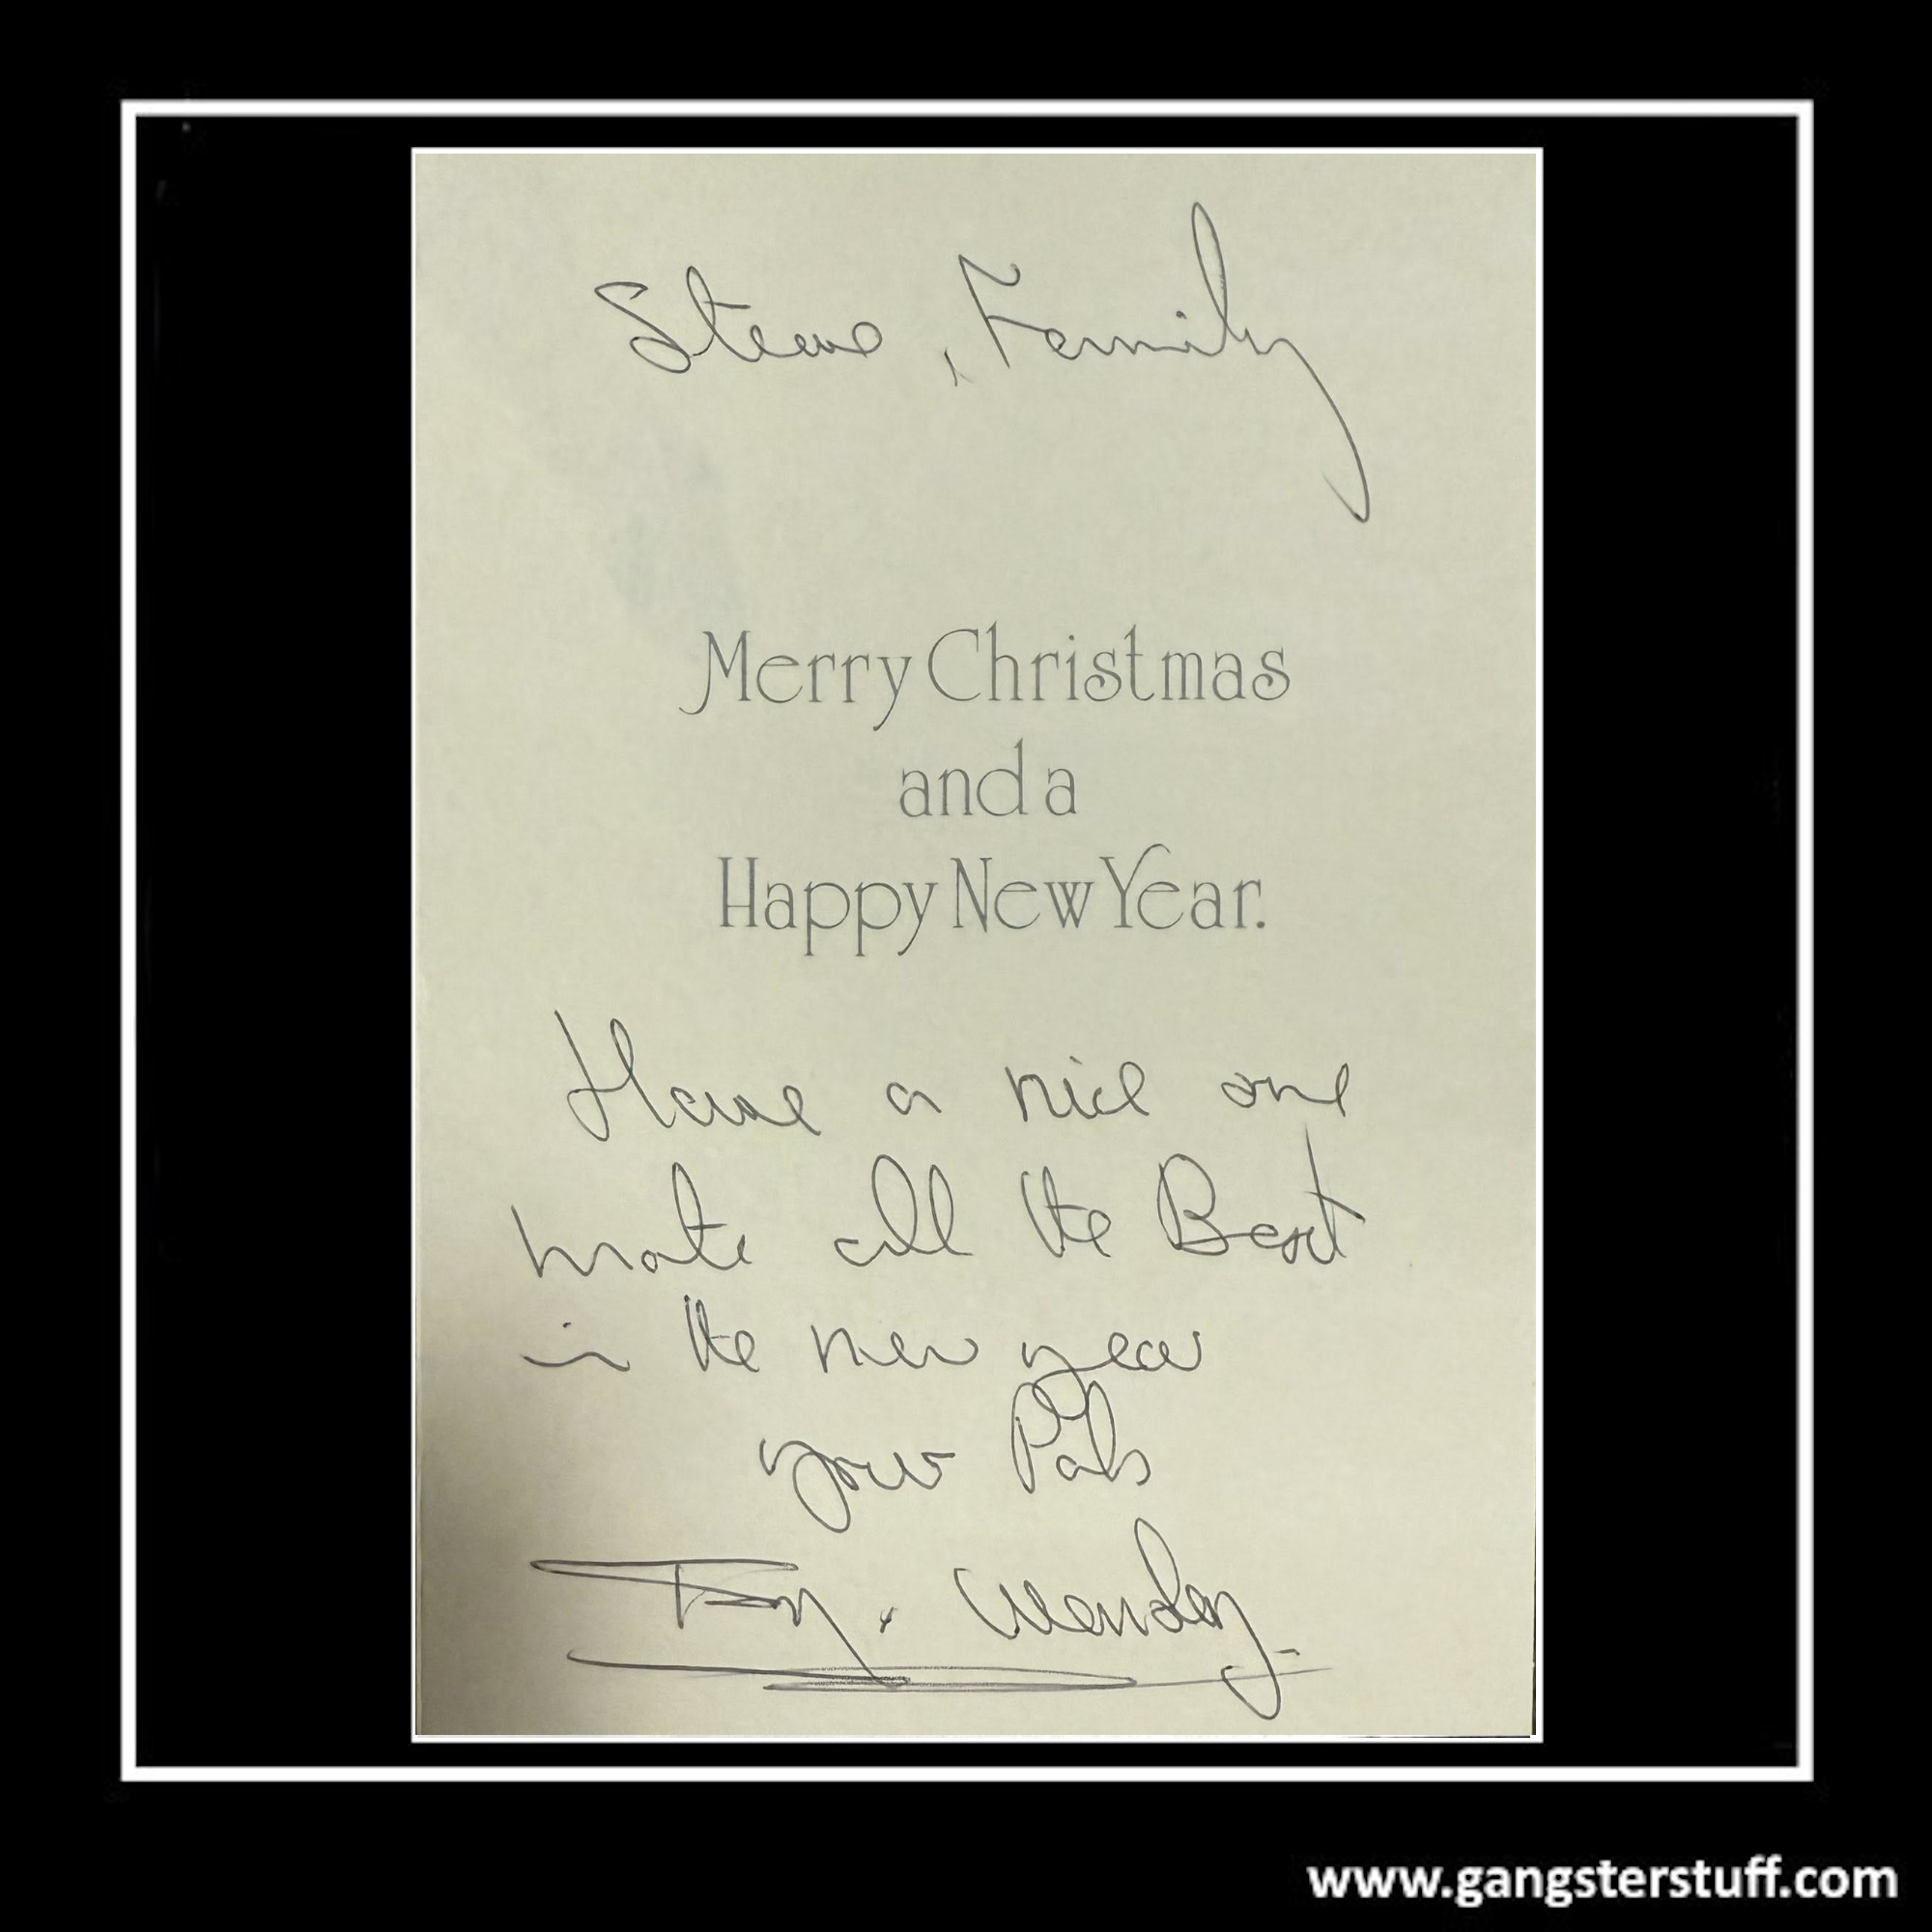 Steve, Family
Merry Christmas
and a
Happy New Year.
Have a nice one
mate all the Best
in the new year
your Pals
Tony. Wendy
www.gangsterstuff.com